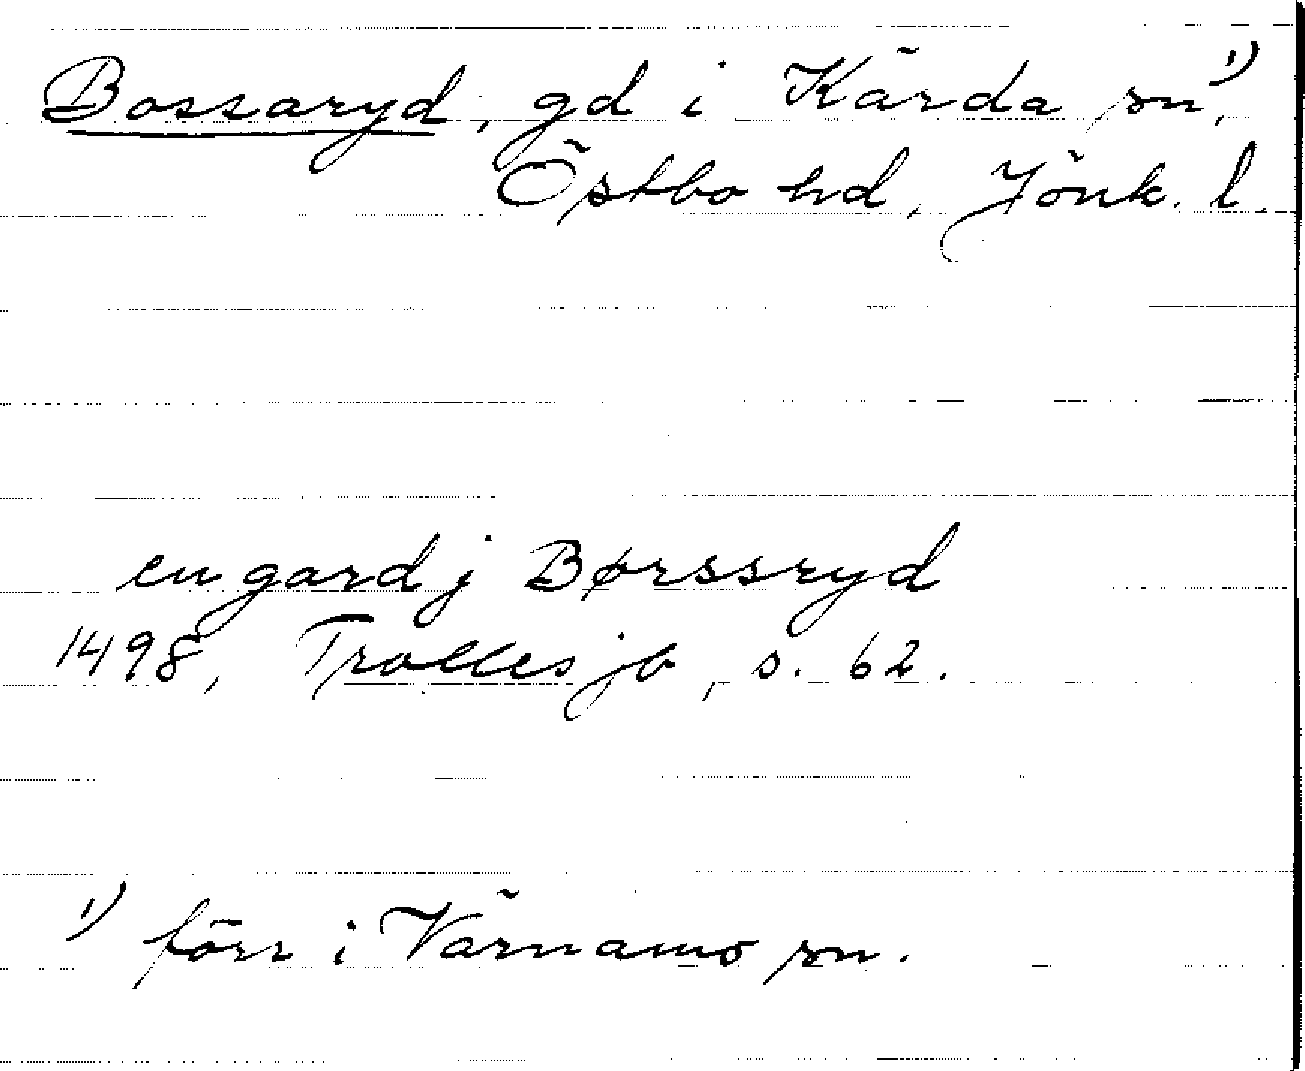 Bossaryd, gd i Kärda sn¹⁾,
Östbo hd, Jönk. l.
en gard j Børssryd
1498, Trolles jb, s. 62.
¹⁾ förr i Värnamo sn.